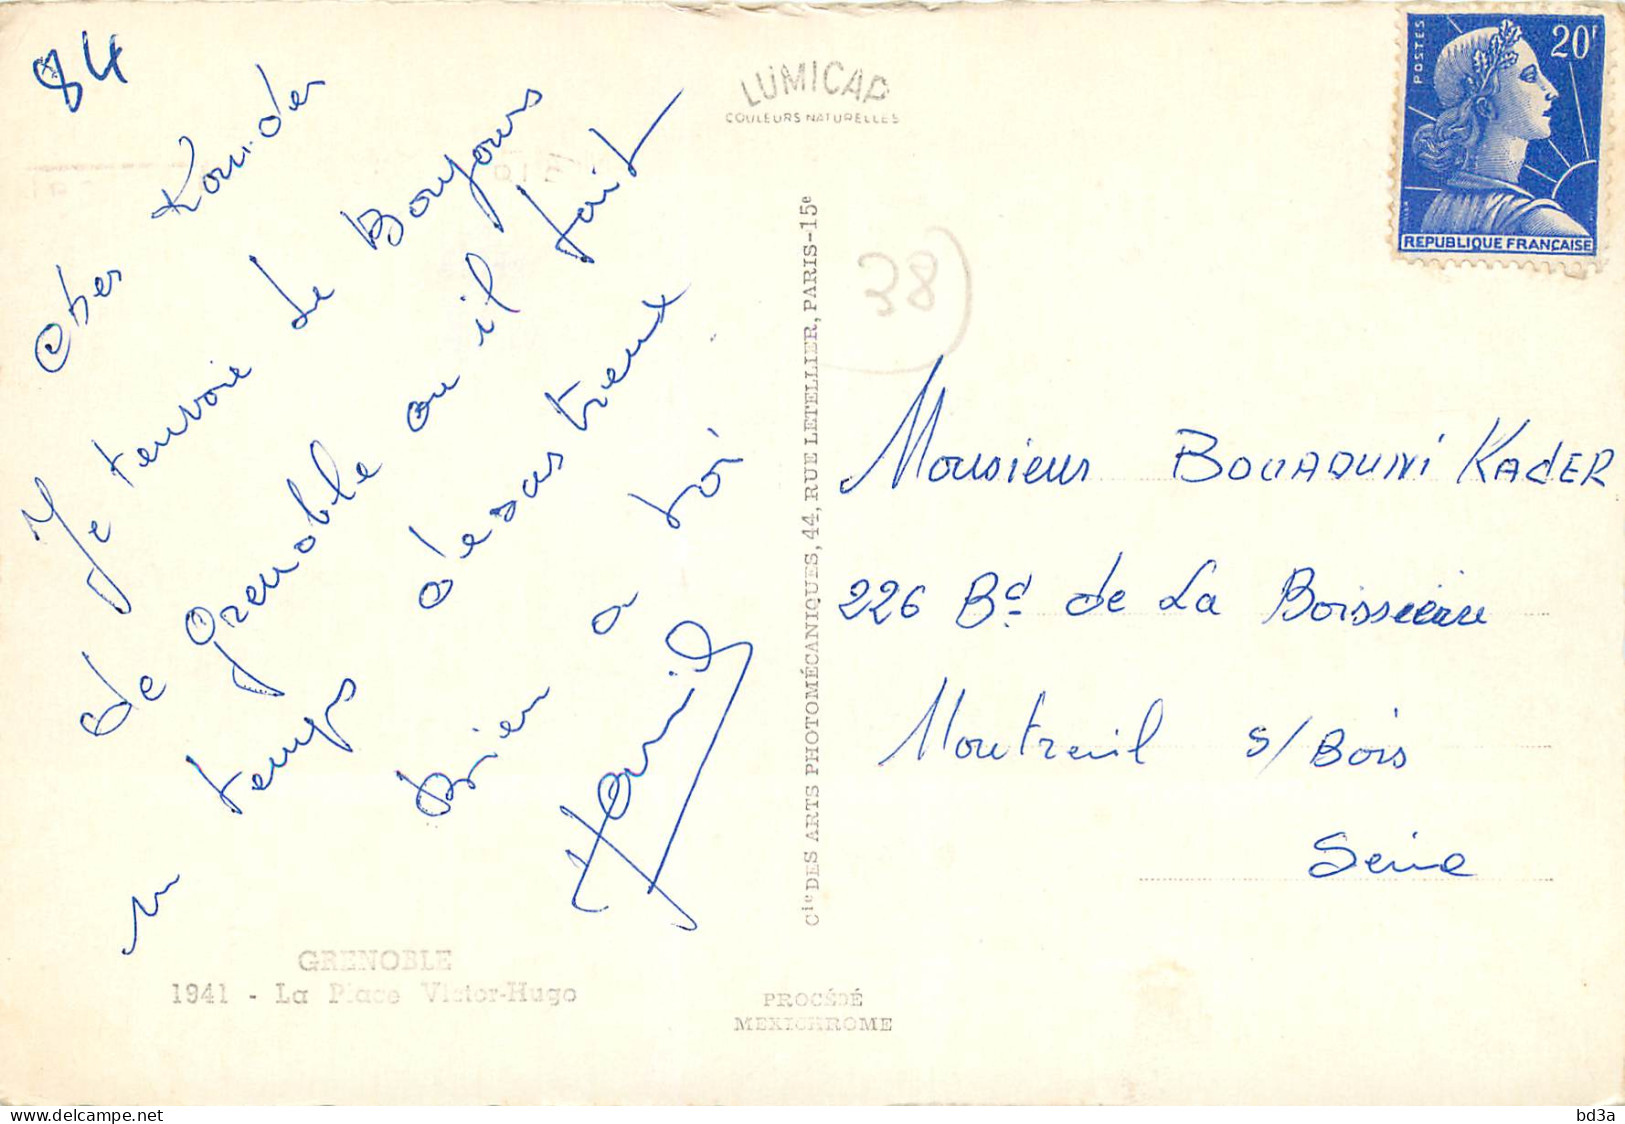 84
Cher Kouider
Je tenvoie le Bonjours
de Grenoble ou il fait
un temps desastreux
Bien a toi
Hamid
GRENOBLE
1941 - La Place Victor-Hugo
LUMICAP
COULEURS NATURELLES
Cie DES ARTS PHOTOMÉCANIQUES, 44, RUE LETELLIER, PARIS-15e
PROCÉDÉ
MEXICHROME
38
POSTES
20F
REPUBLIQUE FRANÇAISE
Monsieur BOUAOUNI KADER
226 Bd de La Boissière
Montreuil s/Bois
Seine
bd3a
www.delcampe.net